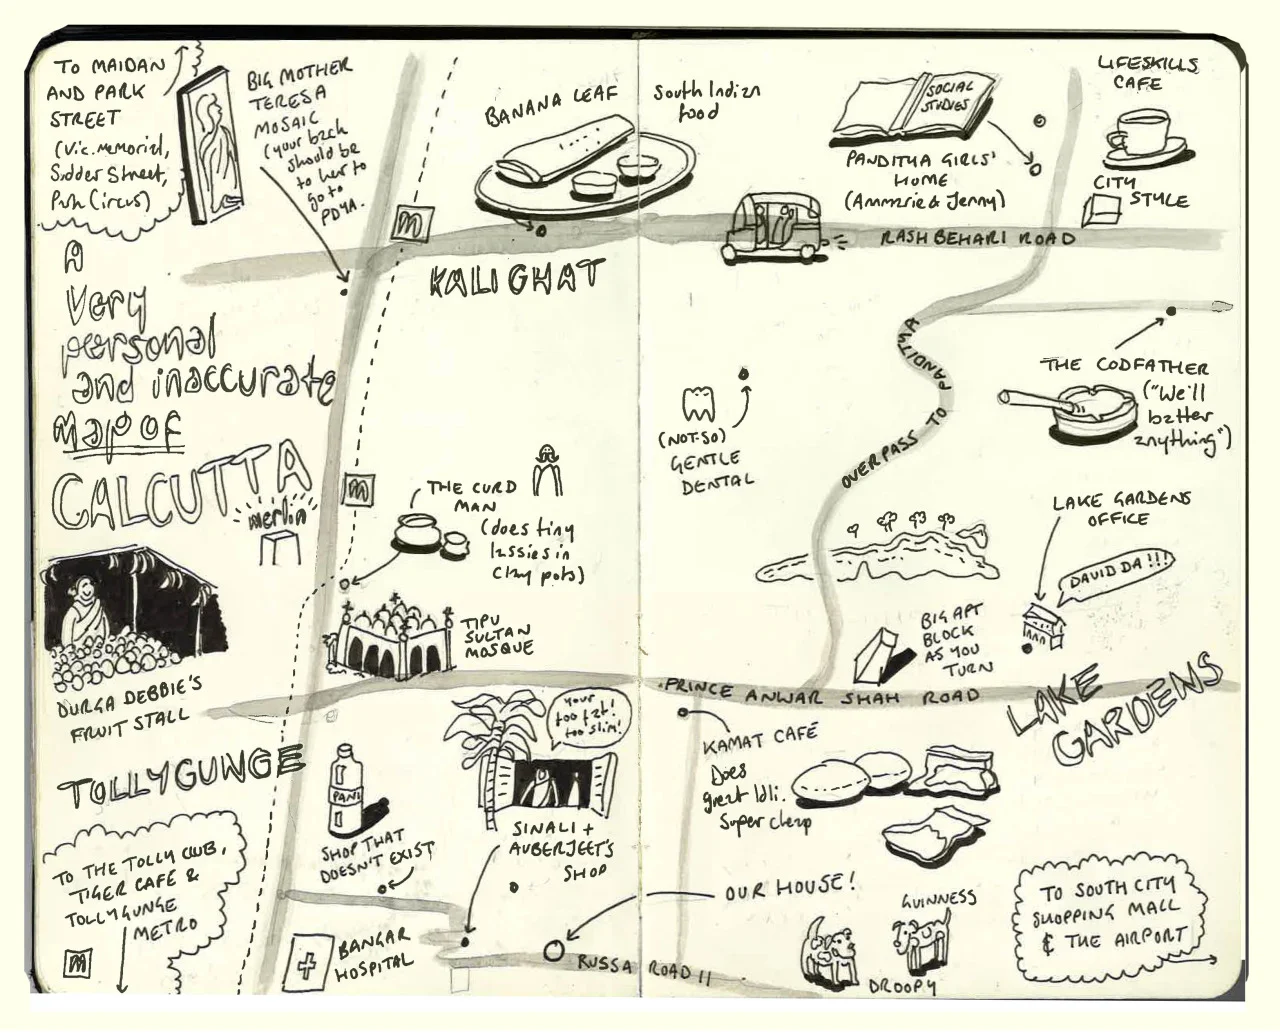 TO MAIDAN
AND PARK
STREET
(Vic. Memorial,
Sudder Street,
Park Circus)
BIG MOTHER
TERESA
MOSAIC
(your back
should be
to her to
go to
PDYA.
m
BANANA LEAF
South Indian
food
SOCIAL
STUDIES
PANDITYA GIRLS'
HOME
(Ammerie & Jenny)
LIFESKILLS
CAFE
CITY
STYLE
RASHBEHARI ROAD
KALIGHAT
A
Very
personal
and inaccurate
Map OF
CALCUTTA
OVERPASS TO PANDITYA
THE CODFATHER
("We'll
batter
anything")
(NOT-SO)
GENTLE
DENTAL
merlin
m
THE CURD
MAN
(does tiny
lassies in
clay pots)
LAKE GARDENS
OFFICE
DAVID DA!!!
TIPU
SULTAN
MOSQUE
BIG APT
BLOCK
AS YOU
TURN
DURGA DEBBIE'S
FRUIT STALL
PRINCE ANWAR SHAH ROAD
LAKE
GARDENS
TOLLYGUNGE
YOUR
too fat!
too slim!
PANI
SHOP THAT
DOESN'T EXIST
SINALI +
AUBERJEET'S
SHOP
KAMAT CAFÉ
Does
great Idli.
Super cheap
TO THE TOLLY CLUB,
TIGER CAFE &
TOLLYGUNGE
METRO
m
BANGAR
HOSPITAL
OUR HOUSE!
RUSSA ROAD 11
GUINNESS
DROOPY
TO SOUTH CITY
SHOPPING MALL
& THE AIRPORT